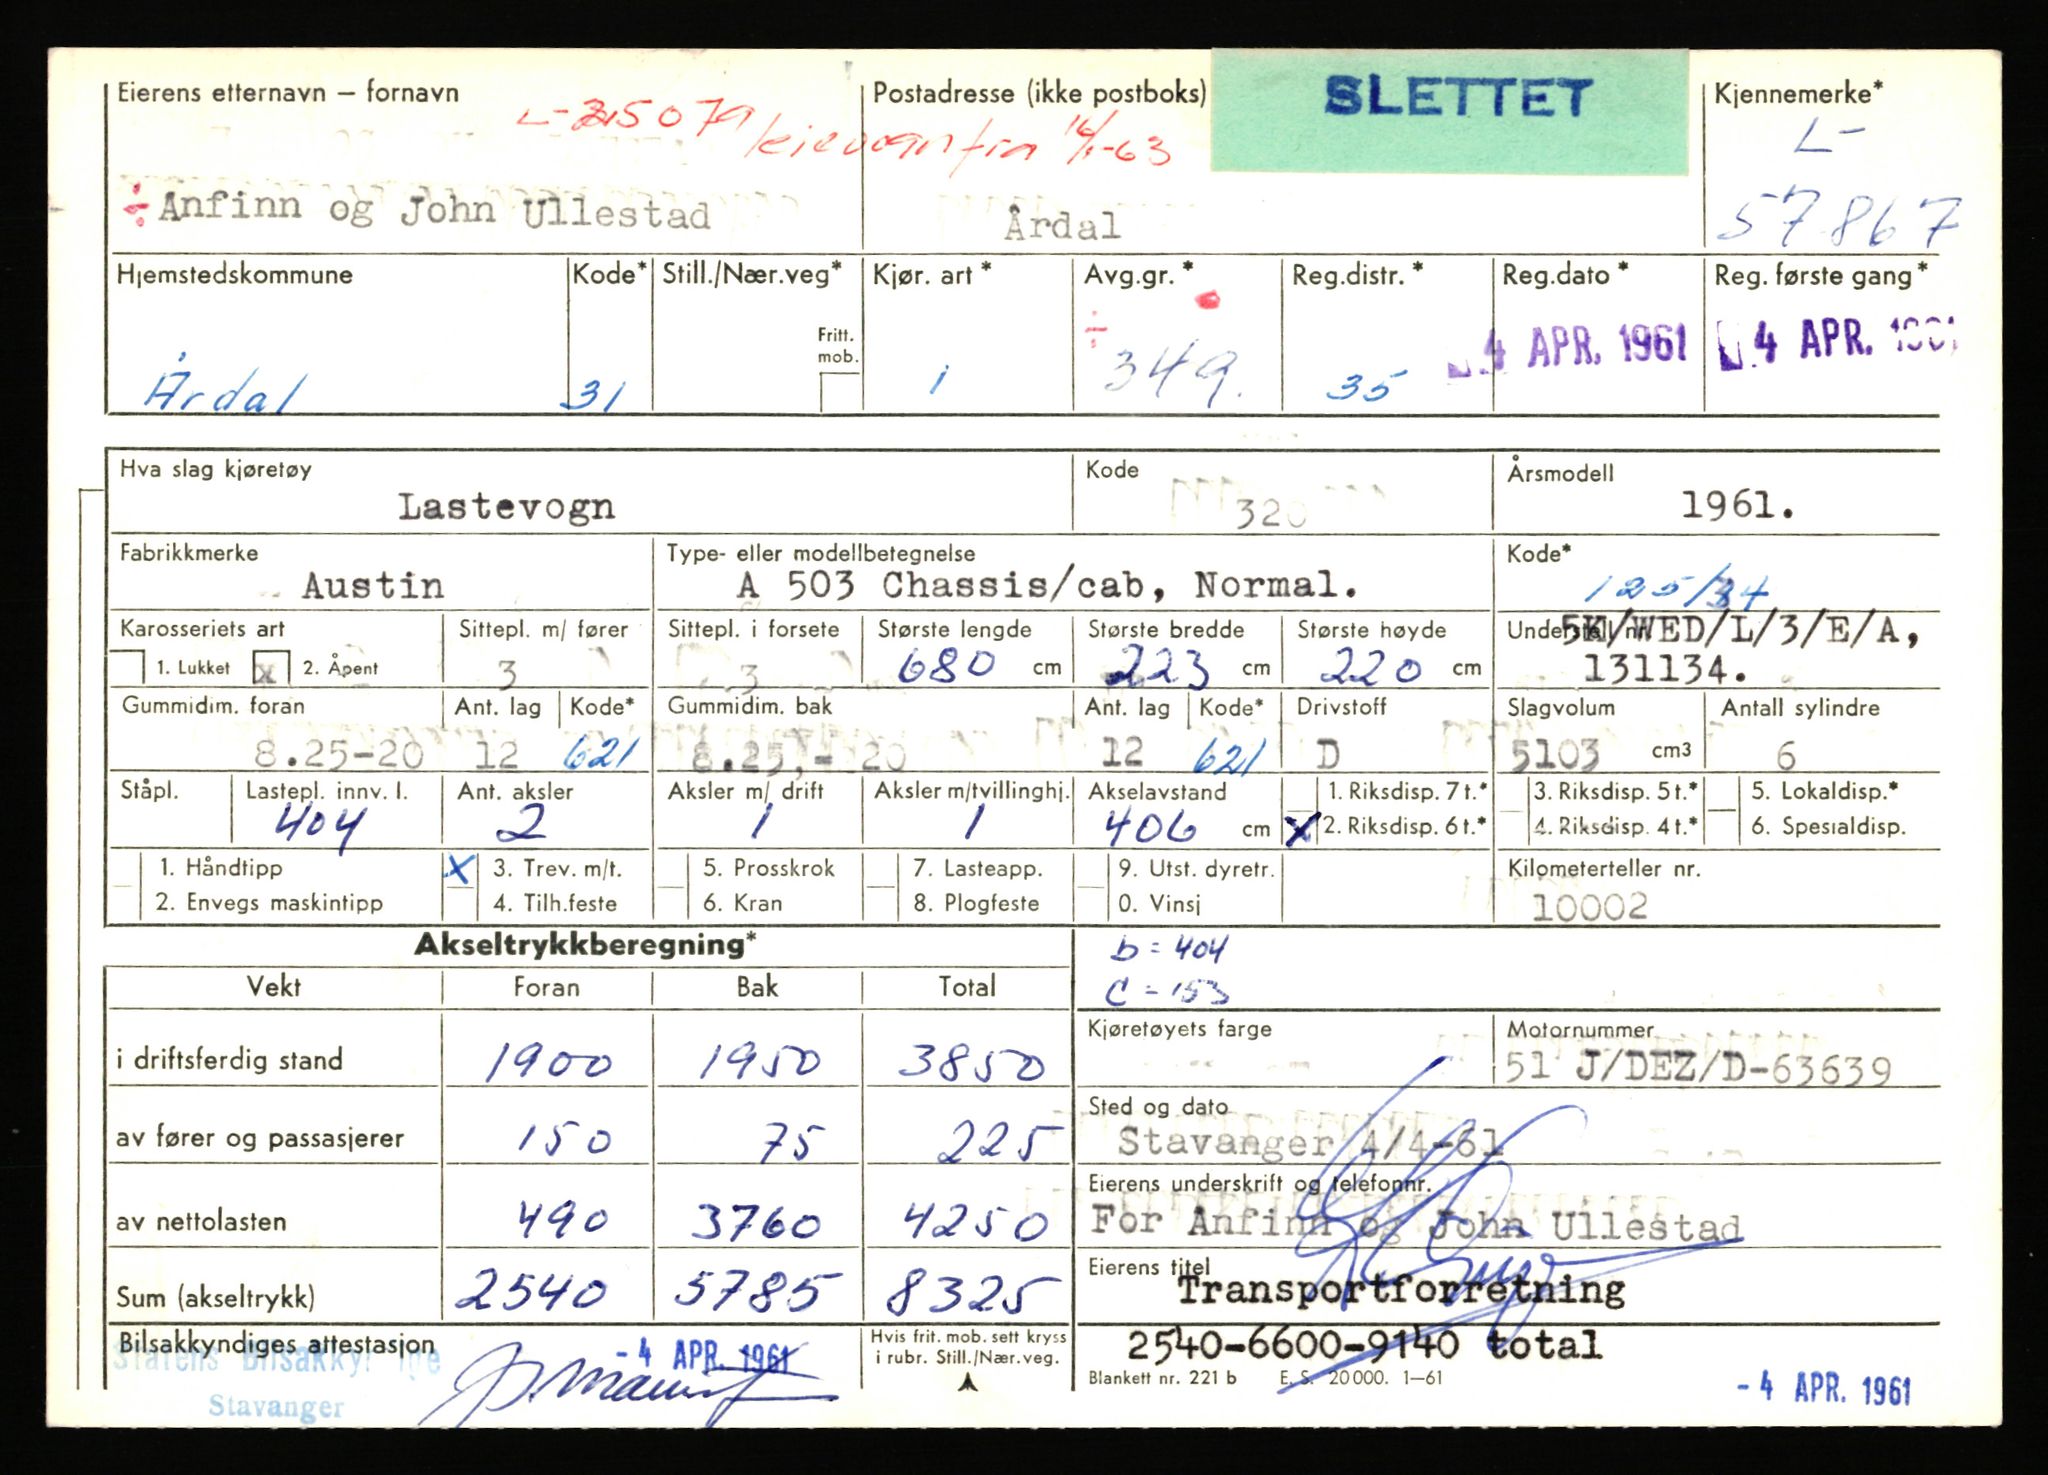 Eierens etternavn – fornavn
Postadresse (ikke postboks)
SLETTET
Kjennemerke*
leievogn fra 16/1-63
L-
57867
÷ Anfinn og John Ullestad
Årdal
Hjemstedskommune Kode* Still./Nær.veg* Kjør. art * Avg.gr. * Reg.distr. * Reg.dato * Reg. første gang*
Fritt. mob.
÷
Årdal 31 1 349. 35 4 APR. 1961 4 APR. 1961
Hva slag kjøretøy Kode Årsmodell
Lastevogn 320 1961.
Fabrikkmerke Type- eller modellbetegnelse Kode*
Austin A 503 Chassis/cab, Normal. 125/34
Karosseriets art Sittepl. m/ fører Sittepl. i forsete Største lengde Største bredde Største høyde Understell nr.
5K/WED/L/3/E/A,
1. Lukket x 2. Åpent 3 3 680 cm 223 cm 220 cm 131134.
Gummidim. foran Ant. lag Kode* Gummidim. bak Ant. lag Kode* Drivstoff Slagvolum Antall sylindre
8.25-20 12 621 8.25,-20 12 621 D 5103 cm3 6
Ståpl. Lastepl. innv. l. Ant. aksler Aksler m/ drift Aksler m/tvillinghj. Akselavstand 1. Riksdisp. 7 t.* 3. Riksdisp. 5 t.* 5. Lokaldisp.*
404 2 1 1 406 cm x 2. Riksdisp. 6 t.* 4. Riksdisp. 4 t.* 6. Spesialdisp.
1. Håndtipp x 3. Trev. m/t. 5. Prosskrok 7. Lasteapp. 9. Utst. dyretr. Kilometerteller nr.
2. Envegs maskintipp 4. Tilh.feste 6. Kran 8. Plogfeste 0. Vinsj 10002
Akseltrykkberegning*
b = 404
c = 153
Vekt Foran Bak Total
Kjøretøyets farge Motornummer
i driftsferdig stand 1900 1950 3850
51 J/DEZ/D-63639
Sted og dato
av fører og passasjerer 150 75 225
Stavanger 4/4-61
Eierens underskrift og telefonnr.
av nettolasten 490 3760 4250
For Anfinn og John Ullestad
Eierens titel
Sum (akseltrykk) 2540 5785 8325
Transportforretning
Bilsakkyndiges attestasjon
Hvis frit. mob. sett kryss
i rubr. Still./Nær.veg.
2540-6600-9140 total
Statens Bilsakky
Stavanger
- 4 APR. 1961
Blankett nr. 221 b E. S. 20 000. 1–61
- 4 APR. 1961